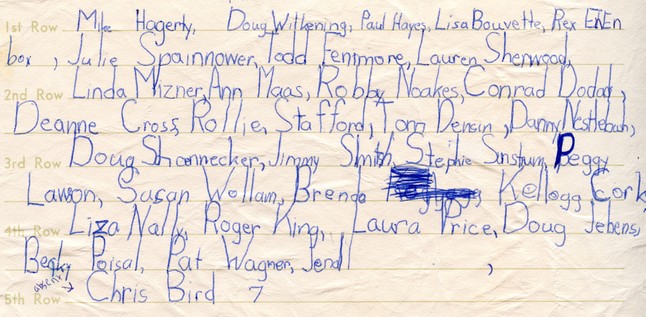 1st Row Mike Hagerty, Doug Witkening, Paul Hayes, Lisa Bouvette, Rex EnEn
box, Julie Spainnower, Todd Fenmore, Lauren Sherwood,
2nd Row Linda Mizner, Ann Maas, Robby Noakes, Conrad Doday,
Deanne Cross, Rollie, Stafford, Tom Densin, Danny Nestlebauh,
3rd Row Doug Shonnecker, Jimmy Smith, Stephie Sunstrum, Peggy
Lawson, Susan Wollam, Brenda Kellogg, Cork
4th Row Liza Nally, Roger King, Laura Price, Doug Jebens,
Becky Poisal, Pat Wagner, Jendl ,
absent
5th Row Chris Bird 7